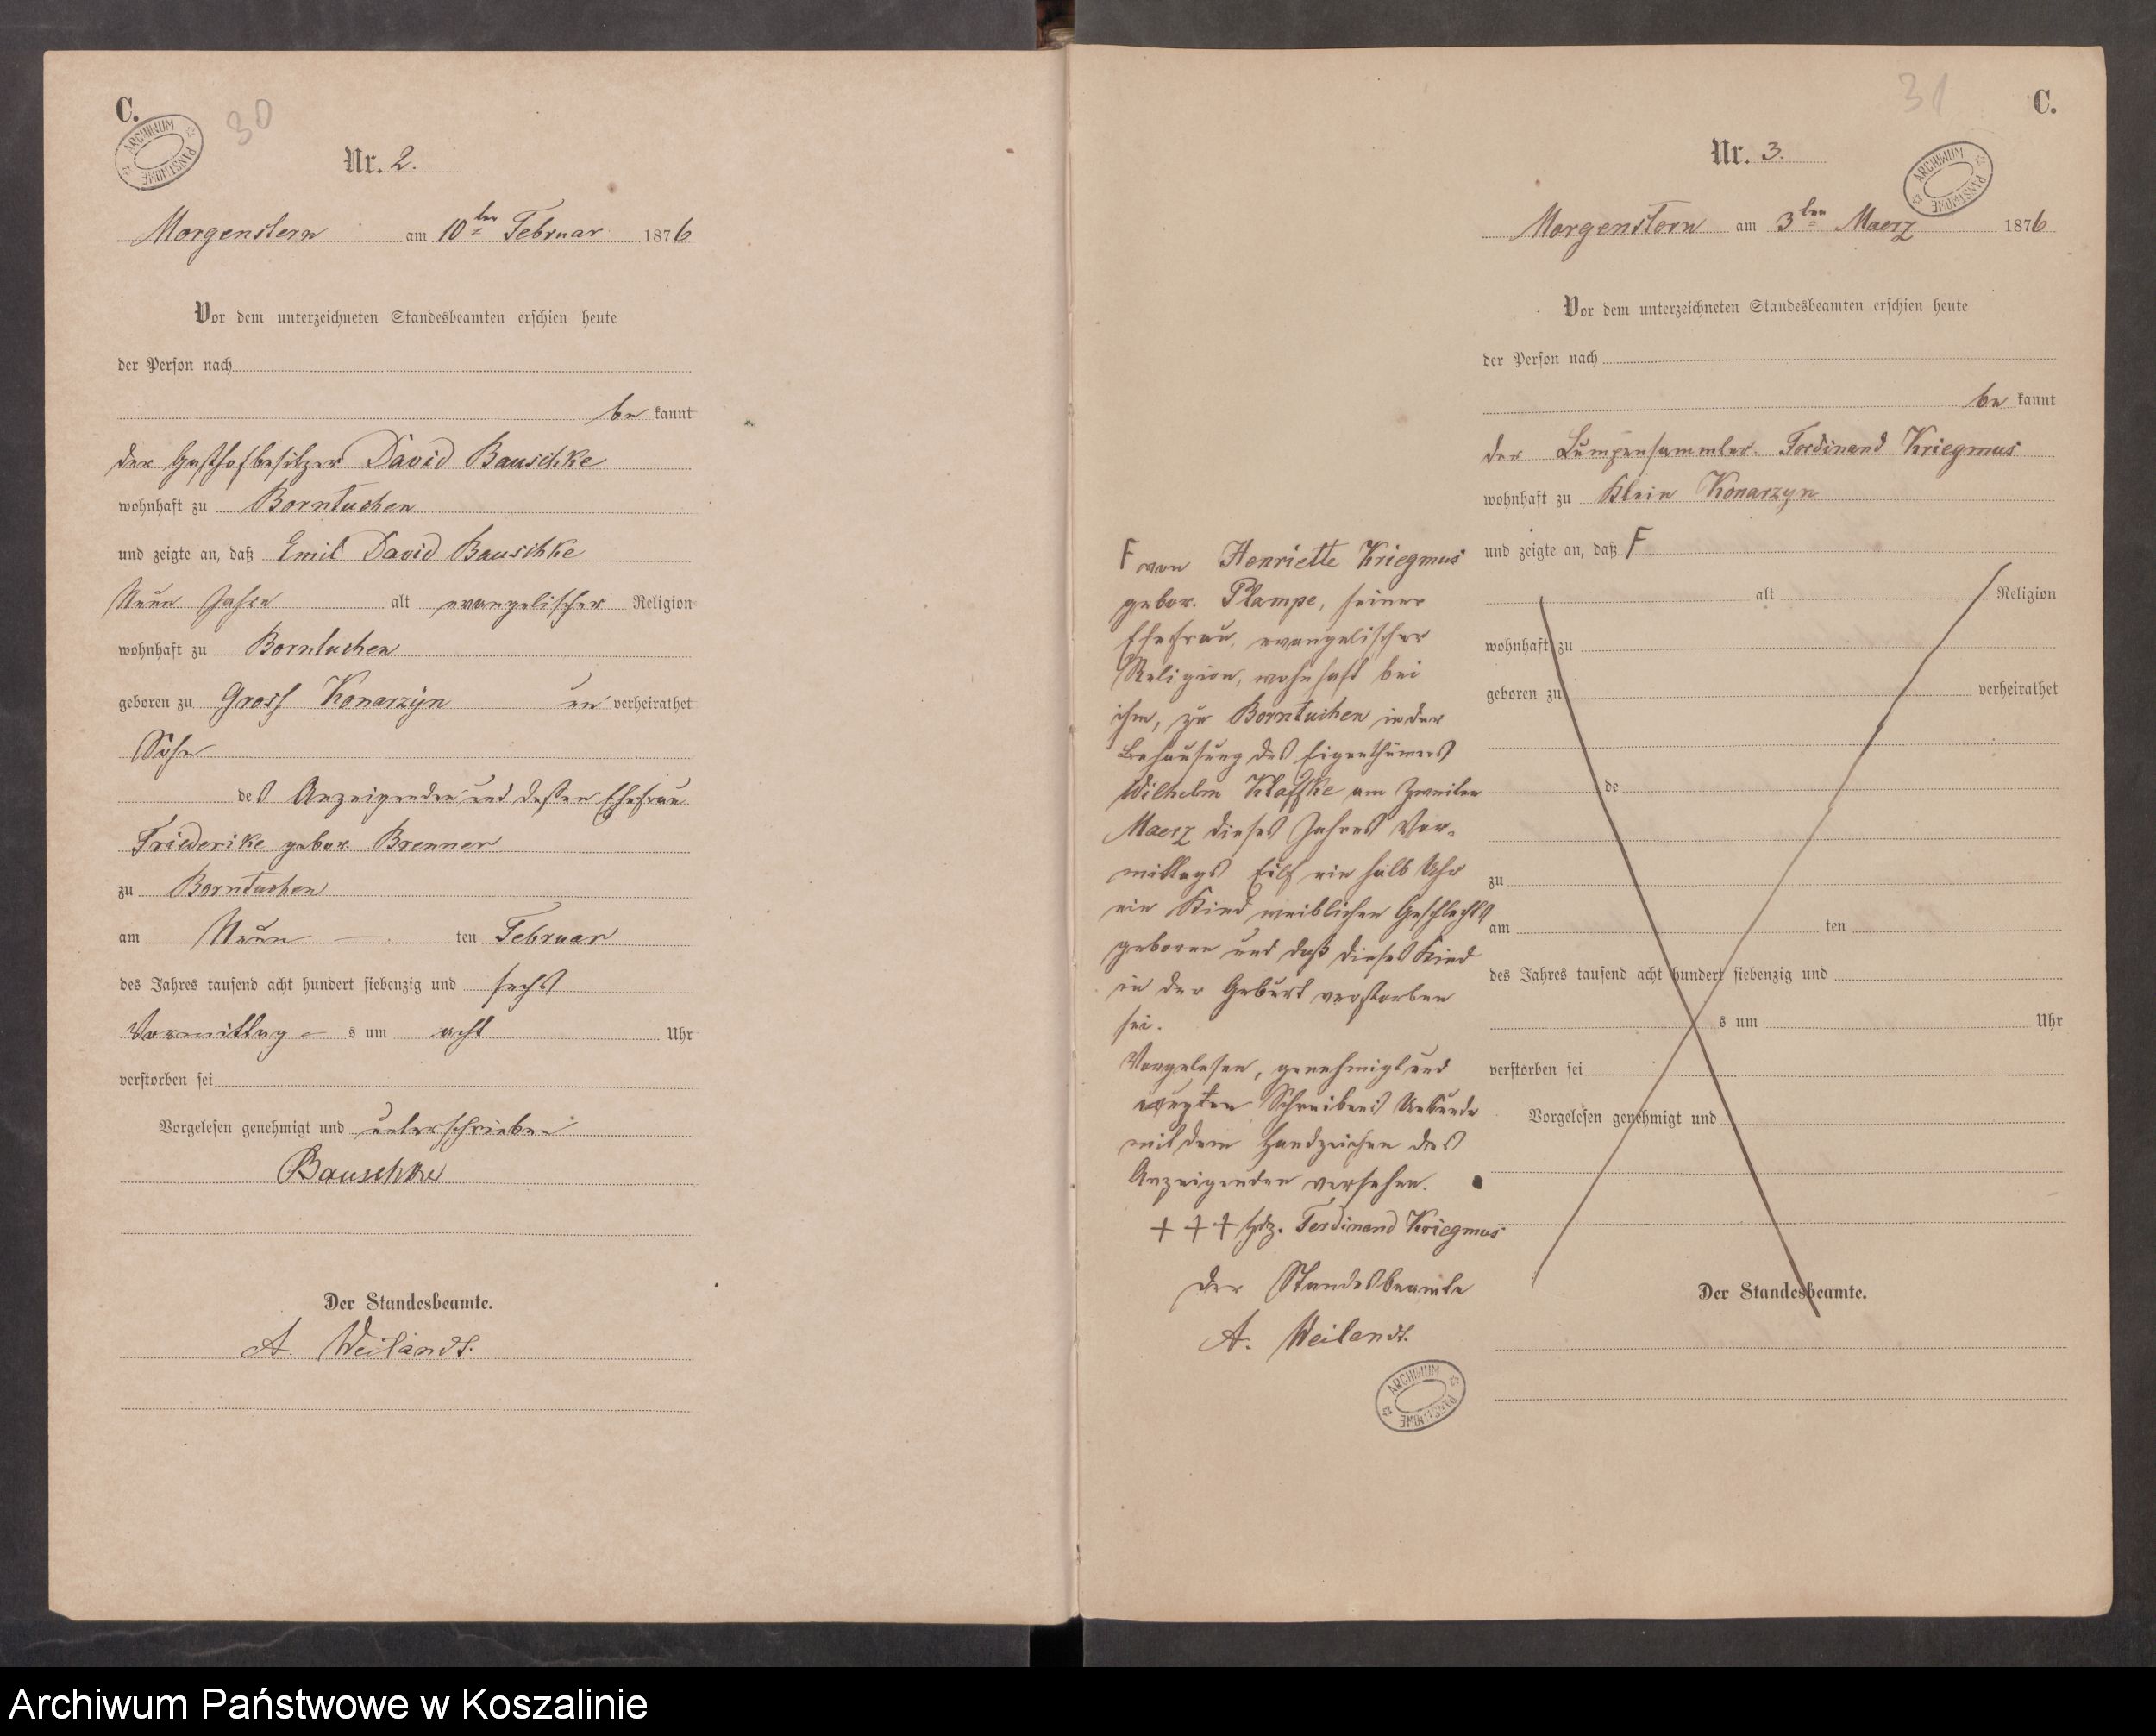 C.
30
ARCHIWUM PAŃSTWOWE
Nr. 2.
Morgenstern am 10ten Februar 1876
Vor dem unterzeichneten Standesbeamten erschien heute
der Person nach
be kannt
der Gasthofbesitzer David Bauschke
wohnhaft zu Borntuchen
und zeigte an, daß Emil David Bauschke
Neun Jahre alt evangelischer Religion
wohnhaft zu Borntuchen
geboren zu Gross Konarzyn un verheirathet
Sohn
des Anzeigenden und dessen Ehefrau
Friederike gebor. Brenner
zu Borntuchen
am Neun ten Februar
des Jahres tausend acht hundert siebenzig und sechs
Vormittag s um acht Uhr
verstorben sei
Vorgelesen genehmigt und unterschrieben
Bauschke
Der Standesbeamte.
A. Weilandt.
31
C.
Nr. 3.
ARCHIWUM PAŃSTWOWE
Morgenstern am 3ten Maerz 1876
Vor dem unterzeichneten Standesbeamten erschien heute
der Person nach
be kannt
der Lumpensammler Ferdinand Kriegmus
wohnhaft zu Klein Konarzyn
und zeigte an, daß F
alt Religion
wohnhaft zu
geboren zu verheirathet
de
zu
am ten
des Jahres tausend acht hundert siebenzig und
s um Uhr
verstorben sei
Vorgelesen genehmigt und
Der Standesbeamte.
F von Henriette Kriegmus
gebor. Plampe, seiner
Ehefrau, evangelischer
Religion, wohnhaft bei
ihm, zu Borntuchen in der
Behausung des Eigenthümers
Wilhelm Klaffke am Zweiten
Maerz dieses Jahres Vor-
mittags Eilf ein halb Uhr
ein Kind weiblichen Geschlechts
geboren und daß dieses Kind
in der Geburt verstorben
sei.
Vorgelesen, genehmigt und
wegen Schreibens Unkunde
mit dem Handzeichen des
Anzeigenden versehen.
+ + + Hdz. Ferdinand Kriegmus
Der Standesbeamte
A. Weilandt.
ARCHIWUM PAŃSTWOWE
Archiwum Państwowe w Koszalinie